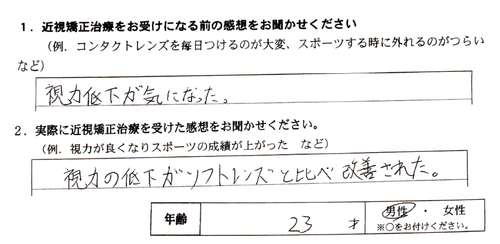 1．近視矯正治療をお受けになる前の感想をお聞かせください
（例．コンタクトレンズを毎日つけるのが大変、スポーツする時に外れるのがつらい
など）
視力低下が気になった。
2．実際に近視矯正治療を受けた感想をお聞かせください。
（例．視力が良くなりスポーツの成績が上がった　など）
視力の低下がソフトレンズと比べ改善された。
年齢　23　才　男性　・　女性
※○をお付けください。